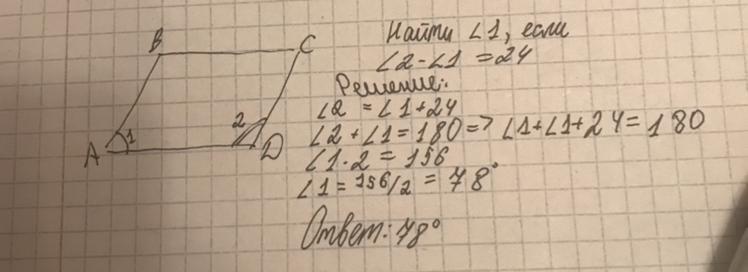 B
C
A
1
2
D
Найти ∠1, если
∠2-∠1 = 24
Решение:
∠2 = ∠1+24
∠2+∠1=180 => ∠1+∠1+24=180
∠1·2 = 156
∠1=156/2 = 78°
Ответ: 78°